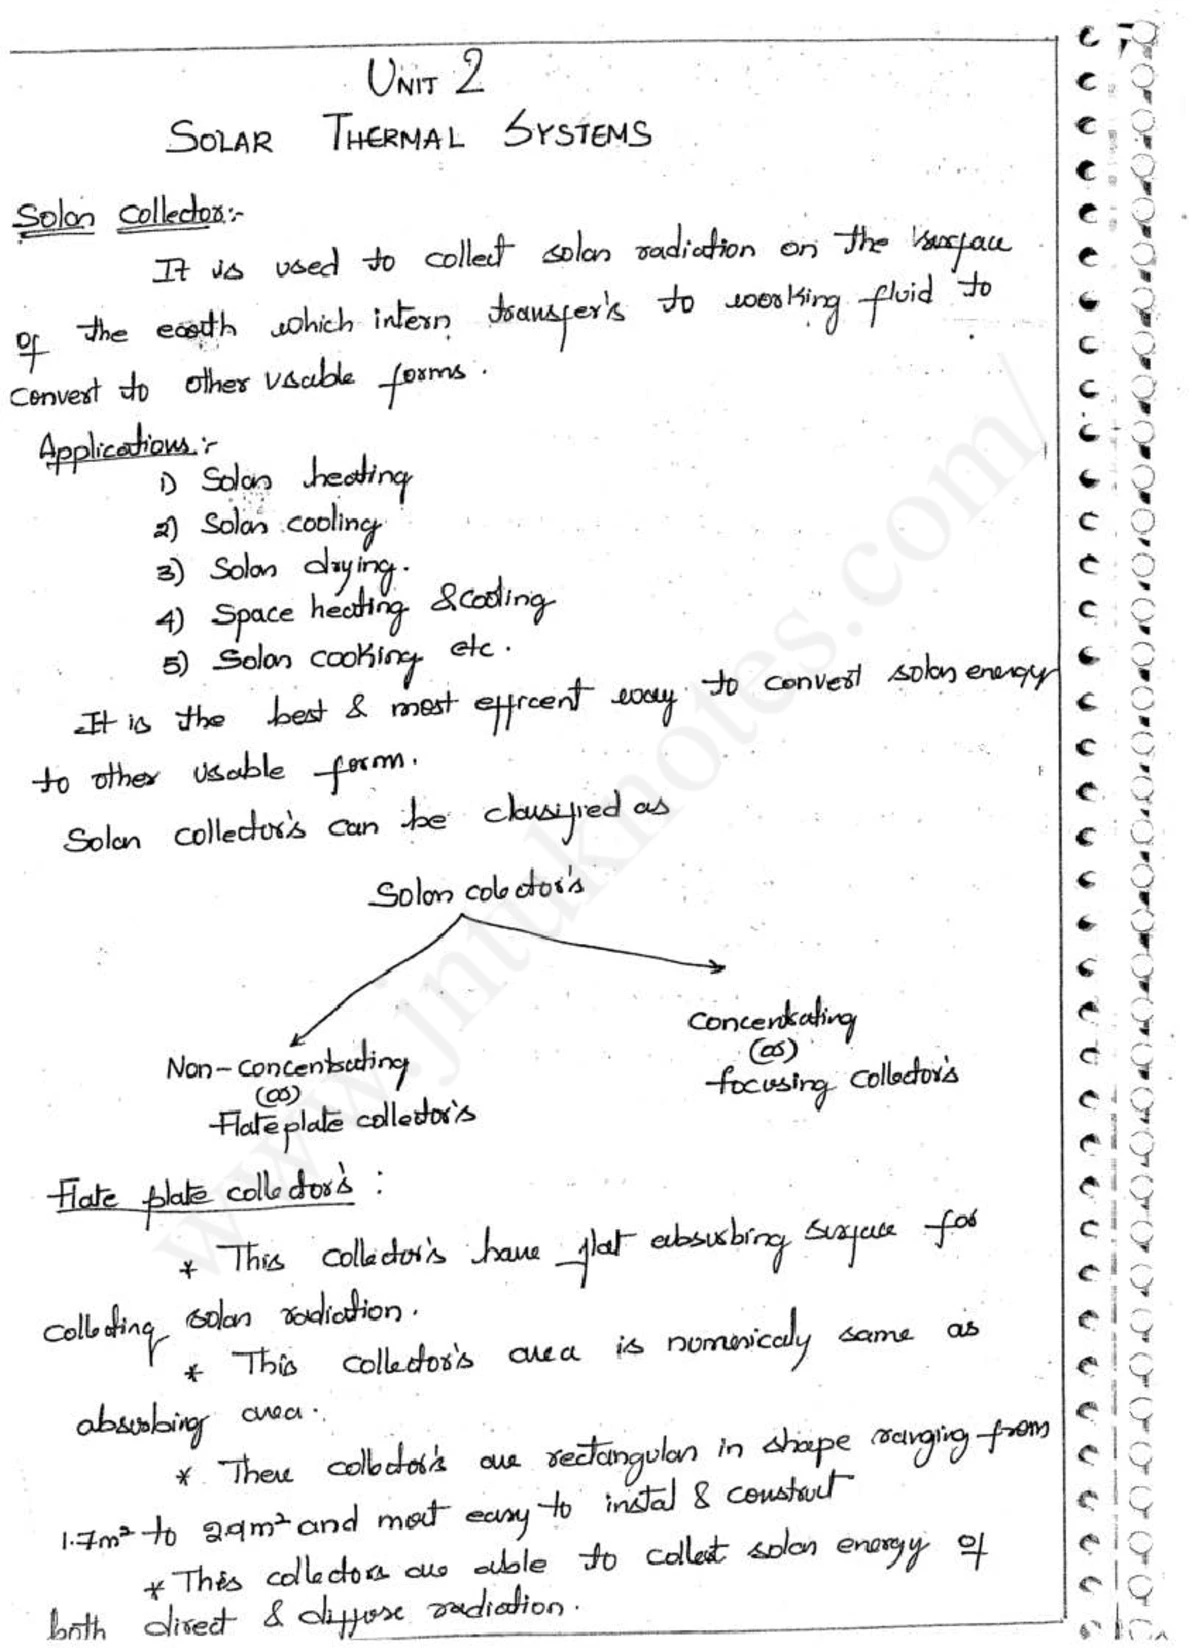 UNIT 2
SOLAR THERMAL SYSTEMS
Solar Collector:-
It is used to collect solar radiation on the surface
of the earth which intern transfer's to working fluid to
convert to other usable forms.
Applications:-
1) Solar heating
2) Solar cooling
3) Solar drying.
4) Space heating & cooling
5) Solar cooking etc.
It is the best & most effrcent way to convert solar energy
to other usable form.
Solar collector's can be classified as
Solar colector's
Concentrating
(or)
focusing collector's
Non-concentrating
(or)
Flate plate collector's
Flate plate collector's :
* This collector's have flat absurbing surface for
collecting solar radiation.
* This collector's area is numericaly same as
absurbing area.
* There collector's are rectangular in shape ranging from
1.7m² to 2.9m² and most easy to instal & construct
* This collectors are able to collect solar energy of
both direct & diffose radiation.
www.jntuknotes.com/